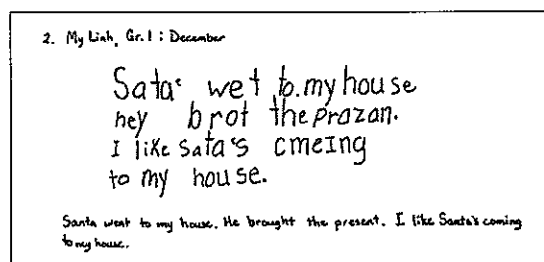 2. My Linh, Gr. 1 : December
Sata's wet to.my house
hey brot the prazan.
I like Sata's cmeing
to my house.
Santa went to my house. He brought the present. I like Santa's coming
to my house.